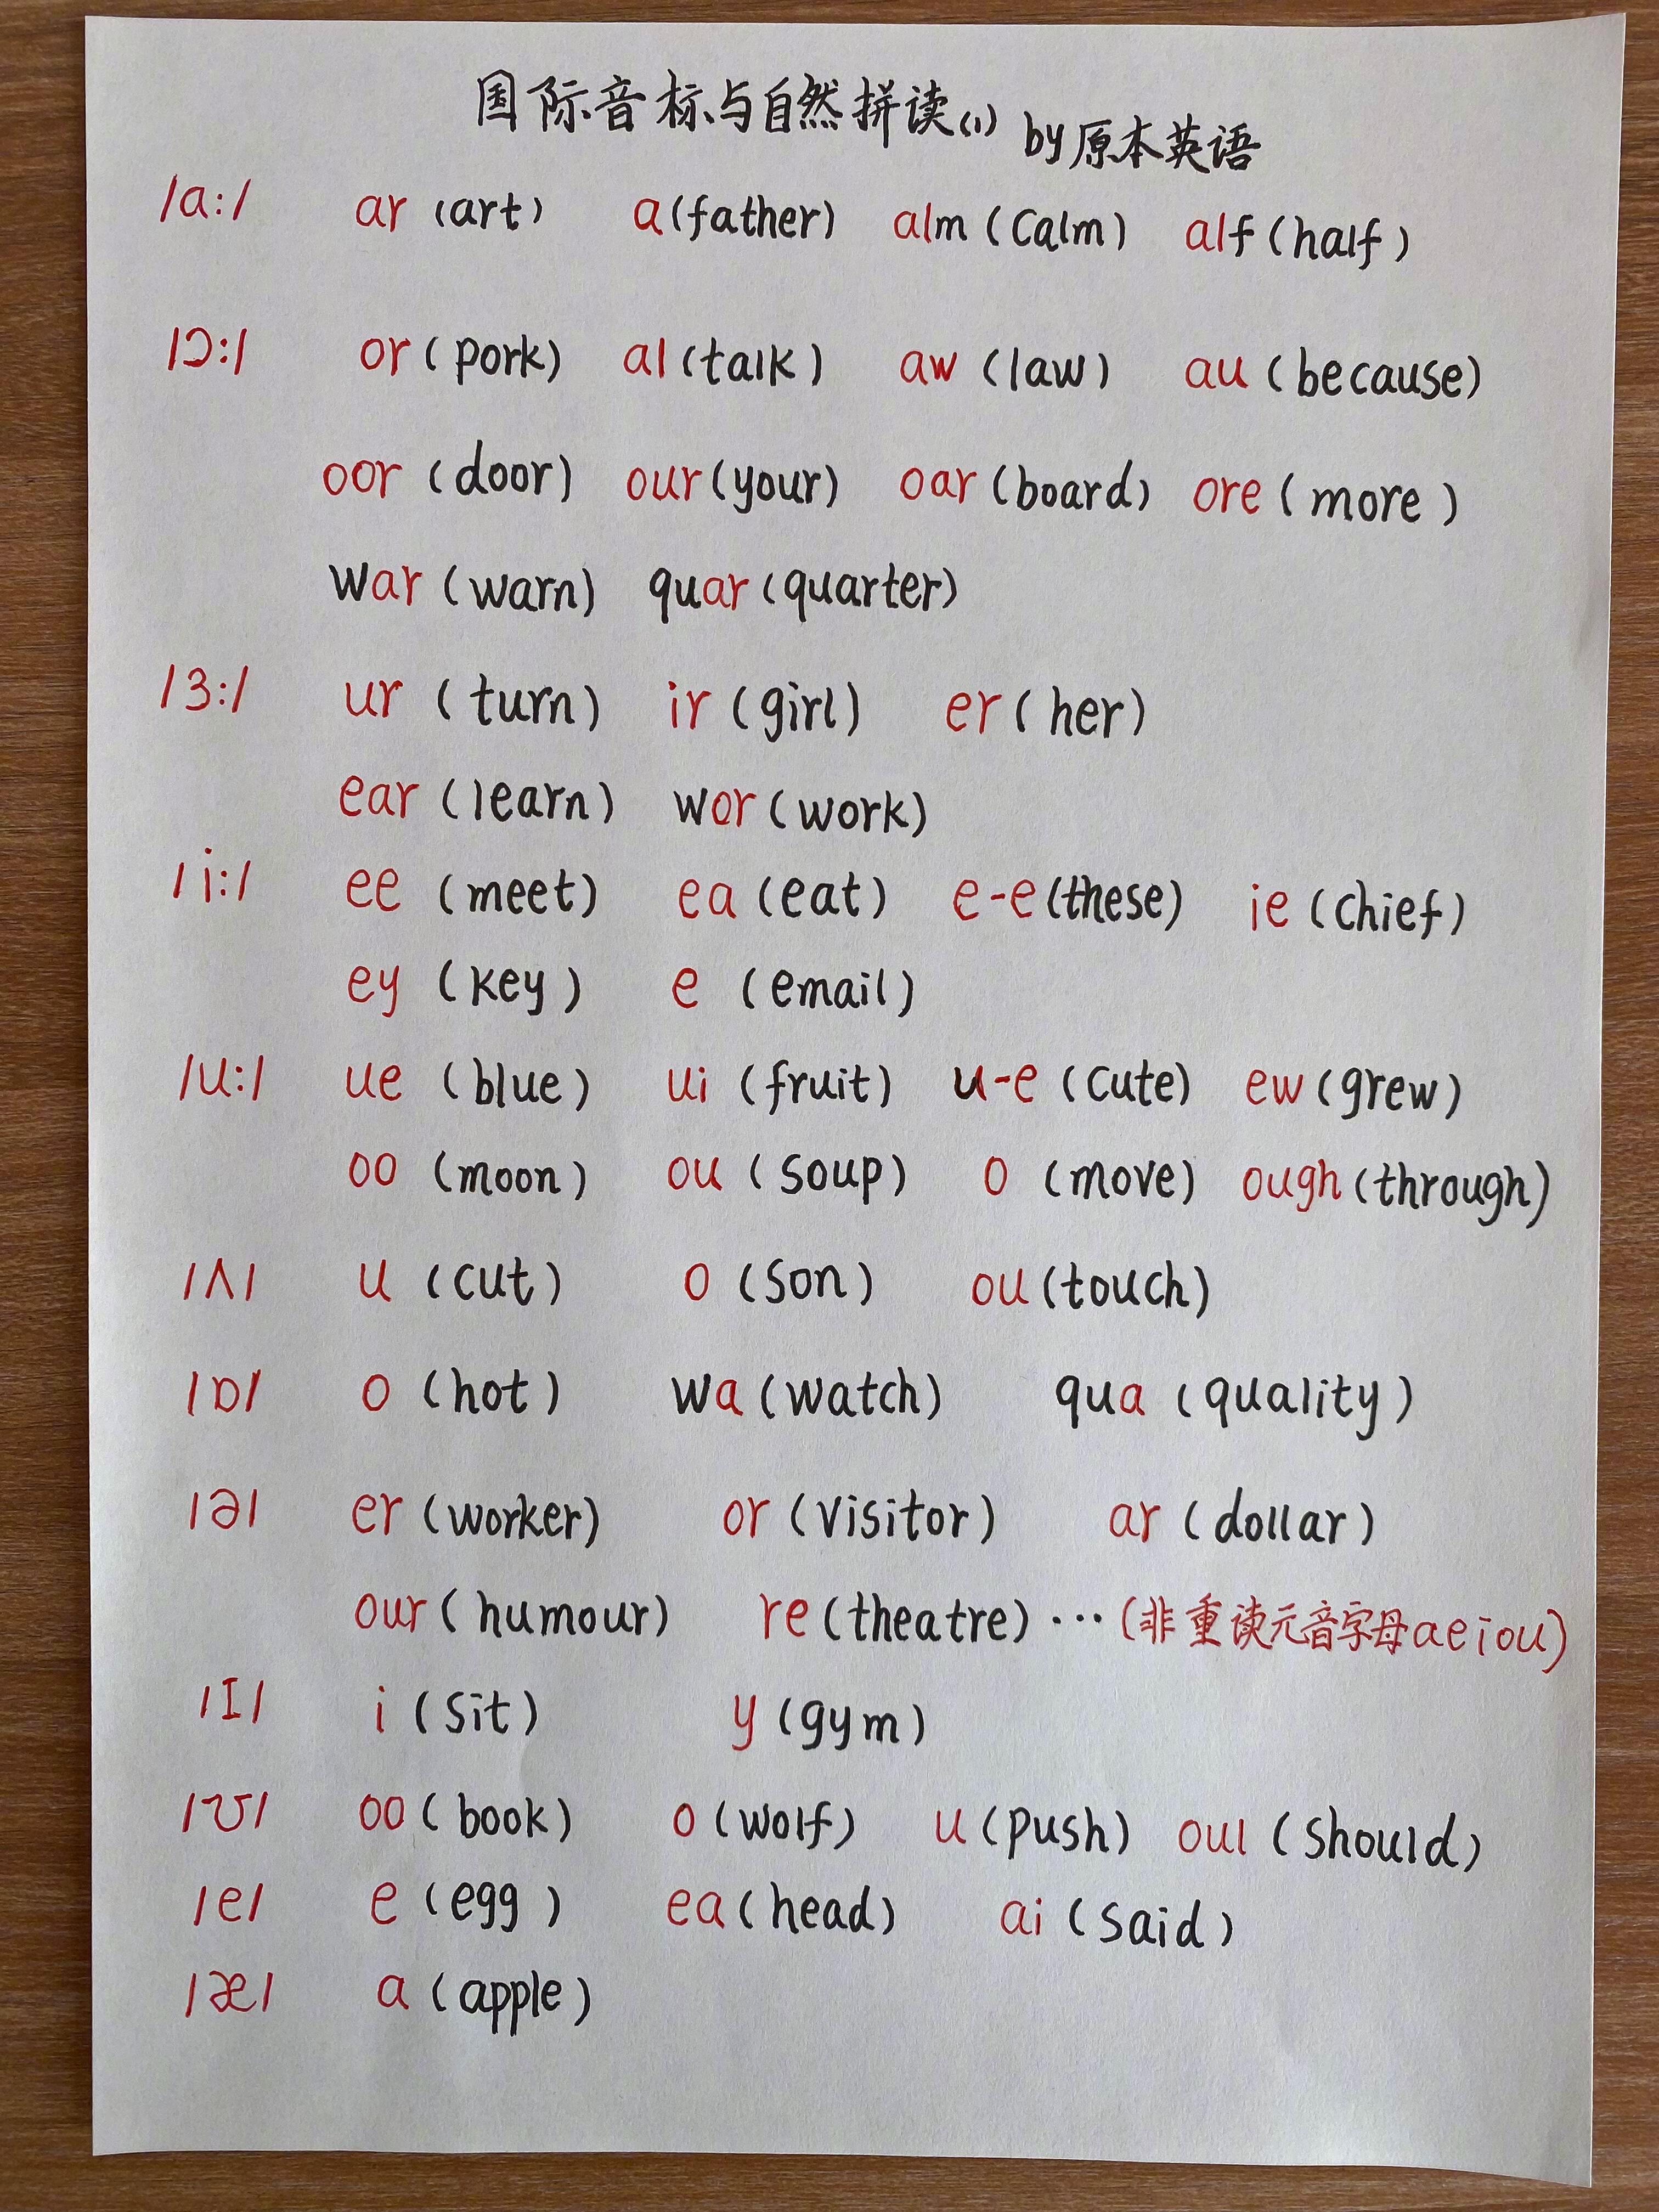 国际音标与自然拼读(1) by原本英语
/ɑ:/ ar (art) a(father) alm (Calm) alf (half)
/ɔ:/ or (pork) al (talk) aw (law) au (because)
oor (door) our (your) oar (board) ore (more)
war (warn) quar (quarter)
/ɜ:/ ur (turn) ir (girl) er (her)
ear (learn) wor (work)
/i:/ ee (meet) ea (eat) e-e (these) ie (chief)
ey (key) e (email)
/u:/ ue (blue) ui (fruit) u-e (cute) ew (grew)
oo (moon) ou (soup) o (move) ough (through)
/ʌ/ u (cut) o (son) ou (touch)
/ɒ/ o (hot) wa (watch) qua (quality)
/ə/ er (worker) or (visitor) ar (dollar)
our (humour) re (theatre) ··· (非重读元音字母aeiou)
/ɪ/ i (sit) y (gym)
/ʊ/ oo (book) o (wolf) u (push) oul (should)
/e/ e (egg) ea (head) ai (said)
/æ/ a (apple)